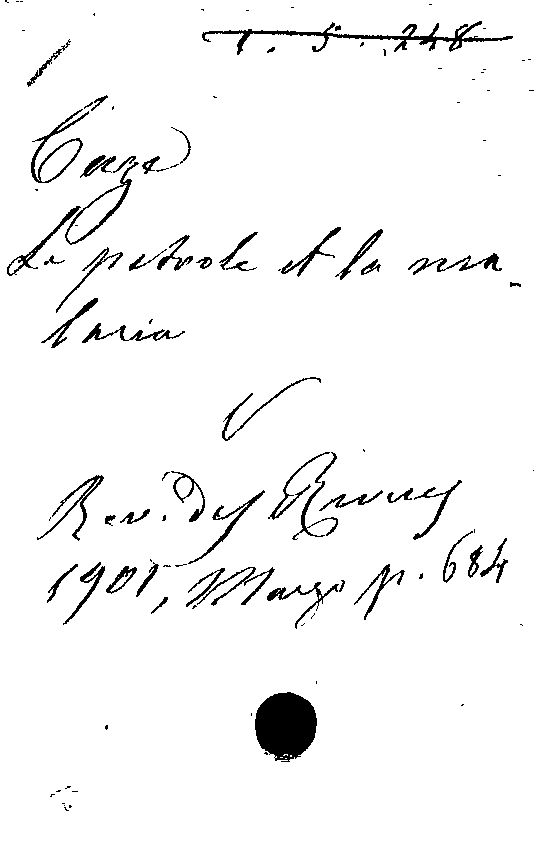 1. 5. 248
Caze
Le petrole et la ma-
laria
Rev. des Revues
1901, Marzo p. 684